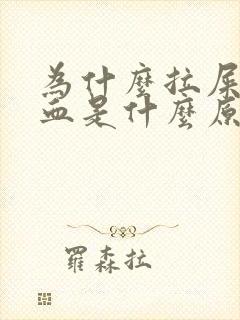 為什麼拉屎
血是什麼原
羅森拉